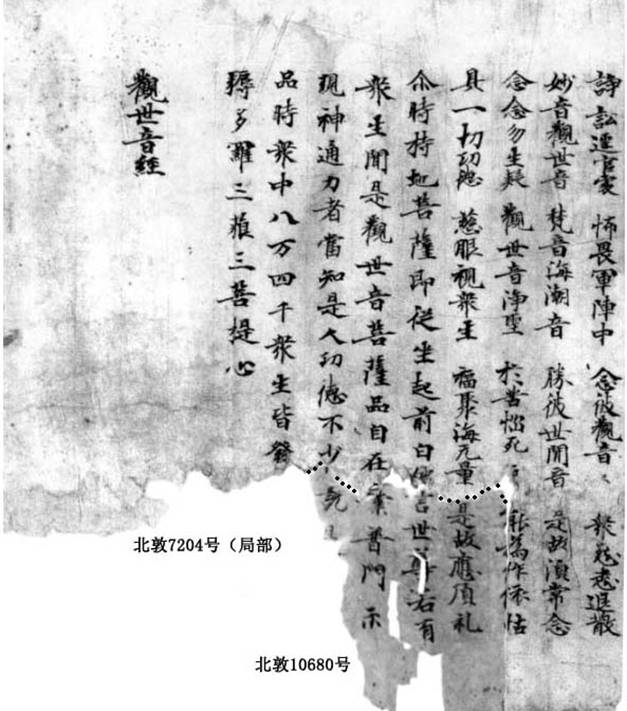 諍訟逕官處 怖畏軍陣中 念彼觀音 衆怨悉退散
妙音觀世音 梵音海潮音 勝彼世間音 是故須常念
念念勿生疑 觀世音淨聖 於苦惱死 能為作依怙
具一切功德 慈眼視衆生 福聚海无量 是故應頂礼
尒時持地菩薩即從坐起前白佛言世尊若有
衆生聞是觀世音菩薩品自在業普門示
現神通力者當知是人功德不少
品時衆中八万四千衆生皆發
耨多羅三藐三菩提心
觀世音經
北敦7204号（局部）
北敦10680号